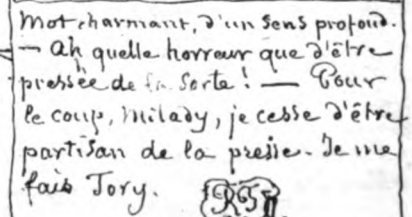 Mot charmant, d'un sens profond.
— Ah quelle horreur que d'être
pressée de la sorte! — Pour
le coup, Milady, je cesse d'être
partisan de la presse. Je me
fais Tory.